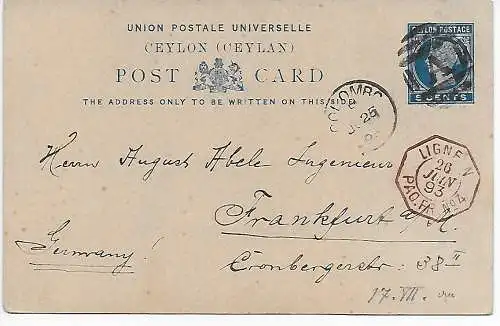 UNION POSTALE UNIVERSELLE
CEYLON (CEYLAN)
POST CARD
THE ADDRESS ONLY TO BE WRITTEN ON THIS SIDE
CEYLON POSTAGE
5 CENTS
COLOMBO
JU 25
LIGNE N
26
JUIN
93
PAQ. FR. Nº4
Herrn August Abele Ingenieur
Frankfurt a/M
Germany!
Cronbergerstr. 38 II
17. VII.